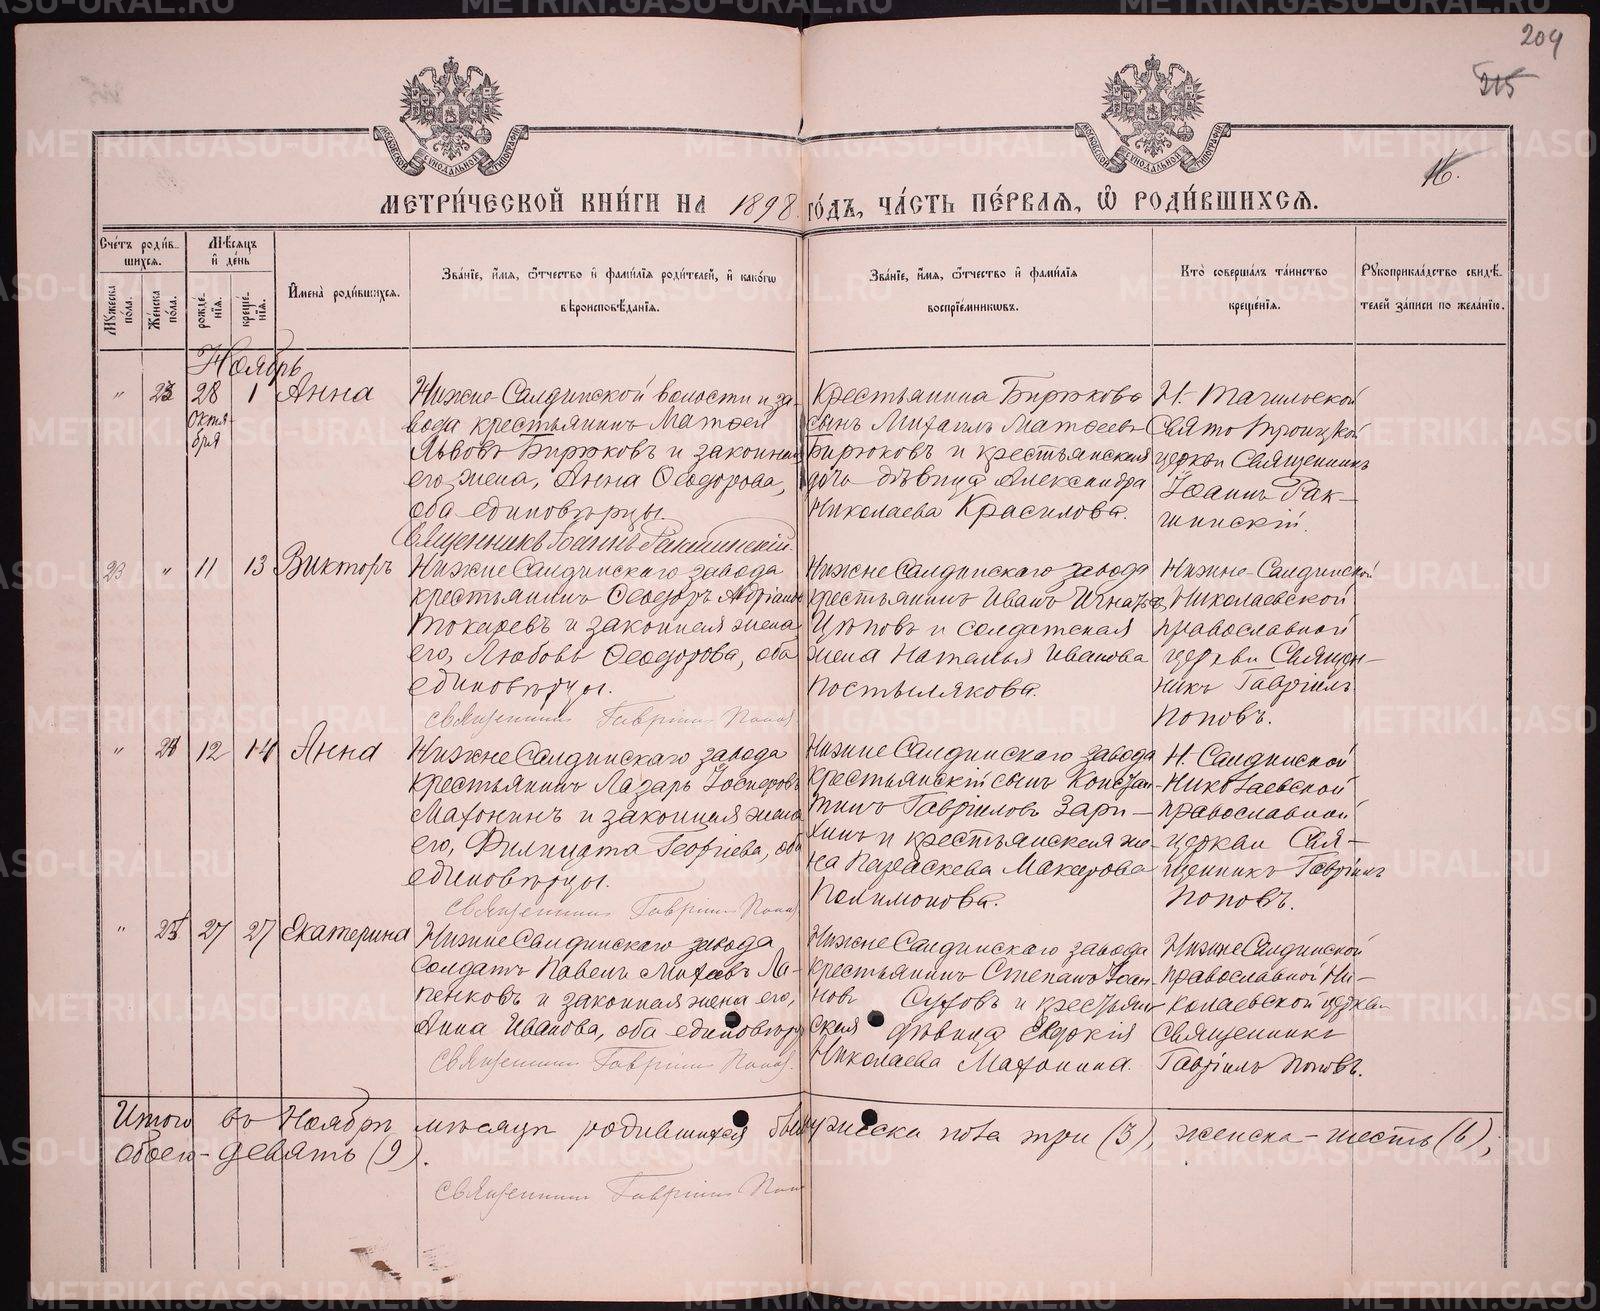 204
215
16.
МОСКОВСКОЙ СѴНОДАЛЬНОЙ ТИПОГРАФІИ
МОСКОВСКОЙ СѴНОДАЛЬНОЙ ТИПОГРАФІИ
МЕТРИ́ЧЕСКОЙ КНИ́ГИ НА 1898 го́дъ, ЧА́СТЬ ПЕ́РВАЯ, Ѡ РОДИ́ВШИХСЯ.
Сче́тъ роди́в-
шихся.
Му́жеска по́ла.
Же́нска по́ла.
Мѣ́сяцъ
и де́нь
рожде́-
нія.
креще́-
нія.
Имена̀ роди́вшихся.
Зва́ніе, и́мя, ѻ́тчество и фами́лія роди́телей, и како́гѡ
вѣроисповѣ́данія.
Зва́ніе, и́мя, ѻ́тчество и фами́лія
воспрі́емникѡвъ.
Кто̀ соверша́лъ та́инство
креще́нія.
Рꙋкоприкла́дство свидѣ́-
телей за́писи по жела́нію.
Ноябрь
" 23 28 1 Анна
Октя-
бря
Нижне-Салдинской волости и за-
вода крестьянинъ Матѳей
Львовъ Бирюковъ и законная
его жена, Анна Ѳеодорова,
оба единовѣрцы.
Священникъ Іоаннъ Ракшинскій.
Крестьянина Бирюкова
сынъ Михаилъ Матѳеевъ
Бирюковъ и крестьянская
дочь дѣвица Александра
Николаева Красилова.
Н-Тагильской
Свято Троицкой
церкви Священникъ
Іоаннъ Рак-
шинскій.
23 " 11 13 Викторъ
Нижне Салдинскаго завода
крестьянинъ Ѳеодоръ Адріановъ
Токаревъ и законная жена
его, Любовь Ѳеодорова, оба
единовѣрцы.
Священникъ Гавріилъ Попов
Нижне Салдинскаго завода
крестьянинъ Иванъ Игнатьевъ
и солдатская
жена Наталья Иванова
Постылякова.
Нижне-Салдинской
Николаевской
православной
церкви Священ-
никъ Гавріилъ
Поповъ.
" 24 12 14 Анна
Нижне Салдинскаго завода
крестьянинъ Лазарь Іосифовъ
Махонинъ и законная жена
его, Филицата Георгіева, оба
единовѣрцы.
Священникъ Гавріилъ Попов
Нижне Салдинскаго завода
крестьянскій сынъ Констан-
тинъ Гавріиловъ Зори-
хинъ и крестьянская же-
на Параскева Макарова
Филимонова.
Н-Салдинской
Николаевской
православной
церкви Свя-
щенникъ Гавріилъ
Поповъ.
" 25 27 27 Екатерина
Нижне Салдинскаго завода
Солдатъ Павелъ Михеевъ Ла-
пенковъ и законная жена его,
Анна Иванова, оба единовѣрцы
Священникъ Гавріилъ Попов.
Нижне Салдинскаго завода
крестьянинъ Степанъ Іоан-
новъ Суховъ и крестьян-
ская дѣвица Евдокія
Николаева Махонина.
Нижне Салдинской
православной Ни-
колаевской церкви
Священникъ
Гавріилъ Поповъ.
Итого въ Ноябрѣ мѣсяцѣ родившихся было мужеска пола три (3), женска-шесть (6),
обоего-девять (9).
Священникъ Гавріилъ Попов
METRIKI.GASO-URAL.RU